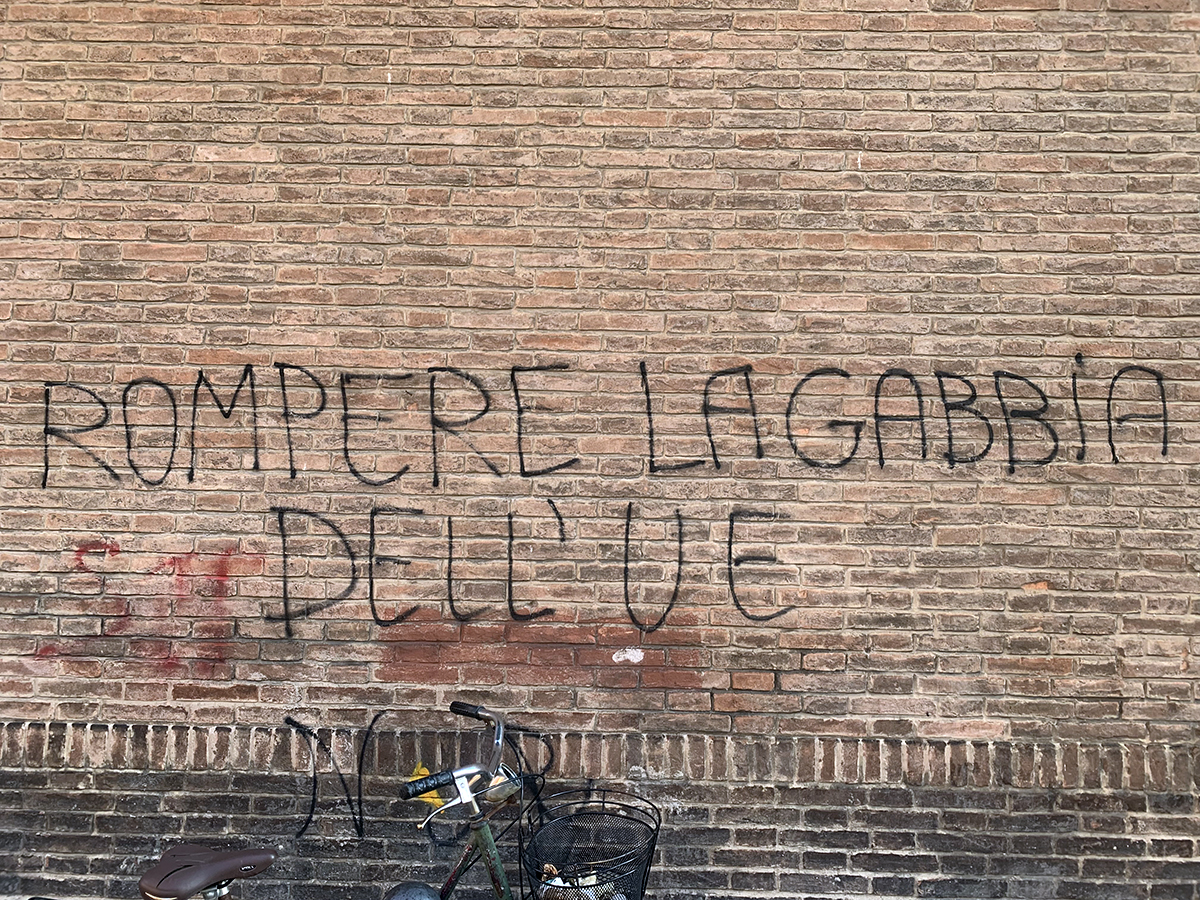 ROMPERE LA GABBIA
DELL'UE